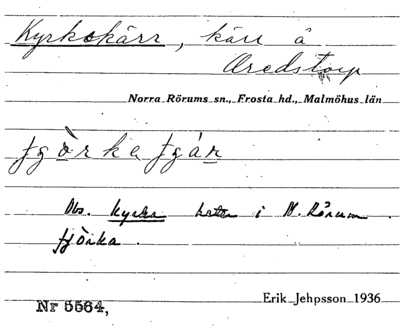 Kyrkskärr, kärr å
Aredstorp
Norra Rörums sn., Frosta hd., Malmöhus län
Obs. kyrka heter i N. Rörum
Nr 5564,
Erik Jehpsson 1936